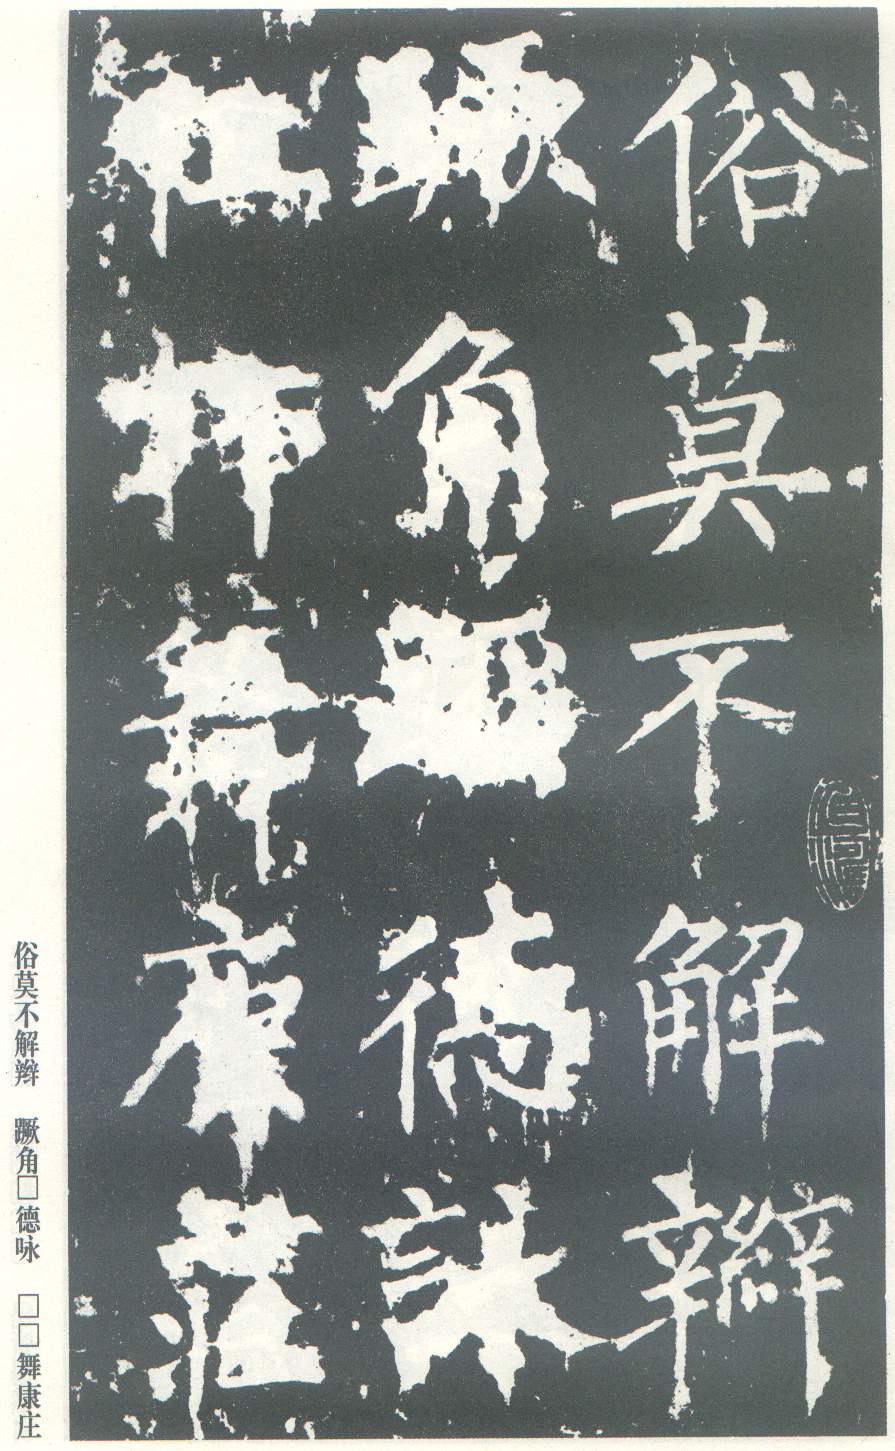 俗莫不解辮
蹶角
德詠
舞康莊
俗莫不解辫 蹶角□德咏 □□舞康庄